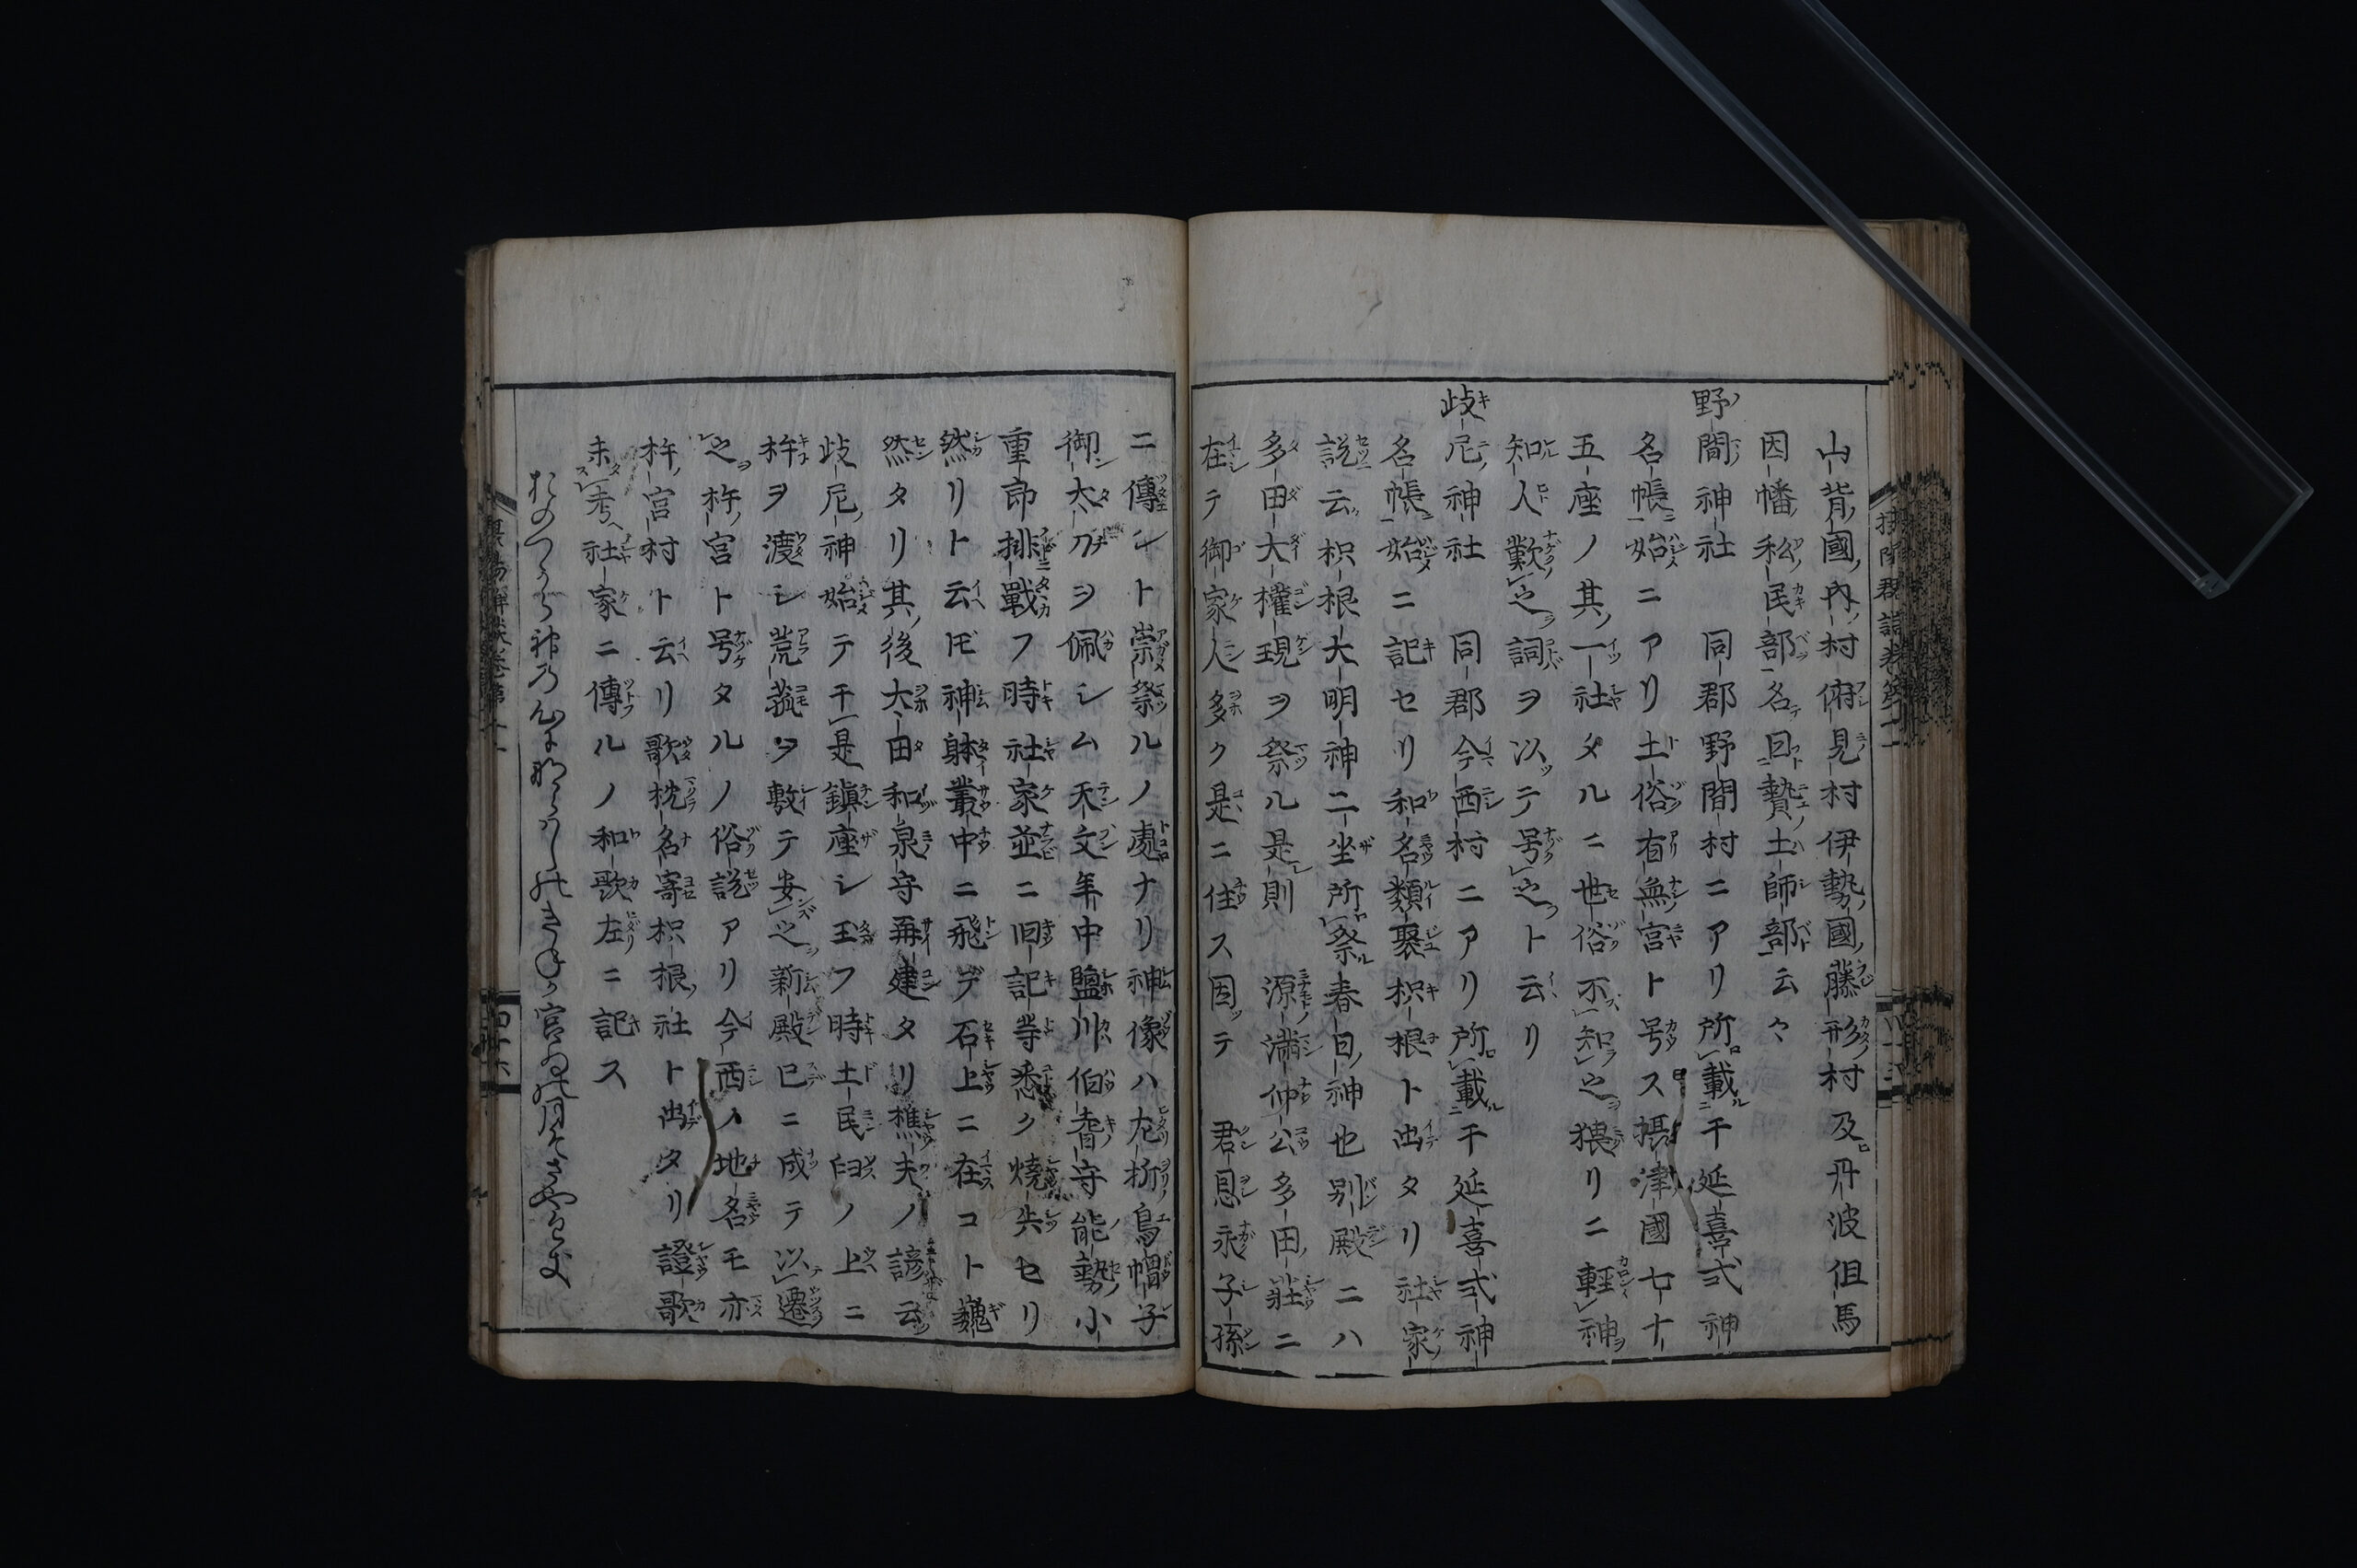 山背國内村俯見村伊勢國藤形村及丹波但馬
因幡私民部名曰贄土師部云々
野間神社 同郡野間村ニアリ所載于延喜式神
名帳始ニアリ土俗有無宮ト号ス摂津國七十
五座ノ其一社タルニ世俗不知之猥リニ軽神
知人歎之詞ヲ以テ号之ト云リ
歧尼神社 同郡今西村ニアリ所載于延喜式神
名帳始ニ記セリ和名類聚枳根ト出タリ社家
説云枳根大明神二坐所祭春日神也別殿ニハ
多田大權現ヲ祭ル是則 源満仲公多田莊ニ
在テ御家人多ク是ニ住ス因テ 君恩永子孫
ニ傳ント崇祭ルノ處ナリ神像ハ左折烏帽子
御太刀ヲ佩シム天文年中鹽川伯耆守能勢小
重郎挑戰フ時社家並ニ旧記等悉ク燒失セリ
然リト云ドモ神躰叢中ニ飛デ石上ニ在コト巍
然タリ其後大田和泉守再建タリ樵夫ノ諺云
歧尼神始テ于是鎮座シ玉フ時土民臼ノ上ニ
杵ヲ渡シ荒菰ヲ敷テ安之新殿已ニ成テ以遷
之杵宮ト号タルノ俗説アリ今西ノ地名モ亦
杵宮村ト云リ歌枕名寄枳根社ト出タリ證歌
未考社家ニ傳ルノ和歌左ニ記ス